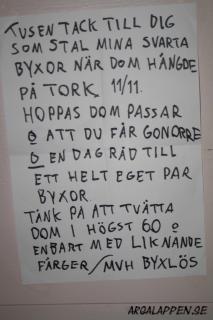 TUSEN TACK TILL DIG
SOM STAL MINA SVARTA
BYXOR NÄR DOM HÄNGDE
PÅ TORK 11/11.
HOPPAS DOM PASSAR
O ATT DU FÅR GONORRE
O EN DAG RÅD TILL
ETT HELT EGET PAR
BYXOR.
TÄNK PÅ ATT TVÄTTA
DOM I HÖGST 60 O
ENBART MED LIKNANDE
FÄRGER/MVH BYXLÖS
ARGALAPPEN.SE